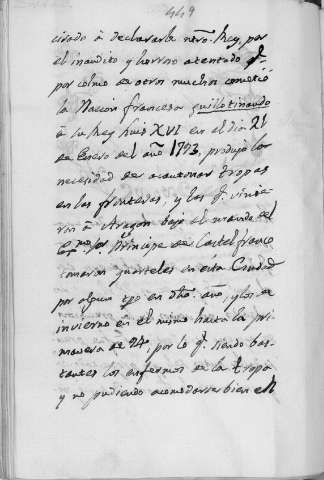 449
cisado à declararla ntro. Rey por
el inaudito y horroro atentado q.
por colmo de otros muchos cometió
la Nacion francesa guillotinando
à su Rey Luis XVI en el dia 21
de Enero del año 1793, produjo la
necesidad de acantonar tropas
en las fronteras, y las q. vinie-
ron à Aragon bajo el mando del
Exmo. Sor. Príncipe de Castelfranco
tomaron quarteles en esta Ciudad
por algun tpo en dho. año, y los de
invierno en el mismo hasta la pri-
mavera de 94, por lo q. siendo bas-
tantes los enfermos de la tropa
y no pudiendo acomodarse bien en